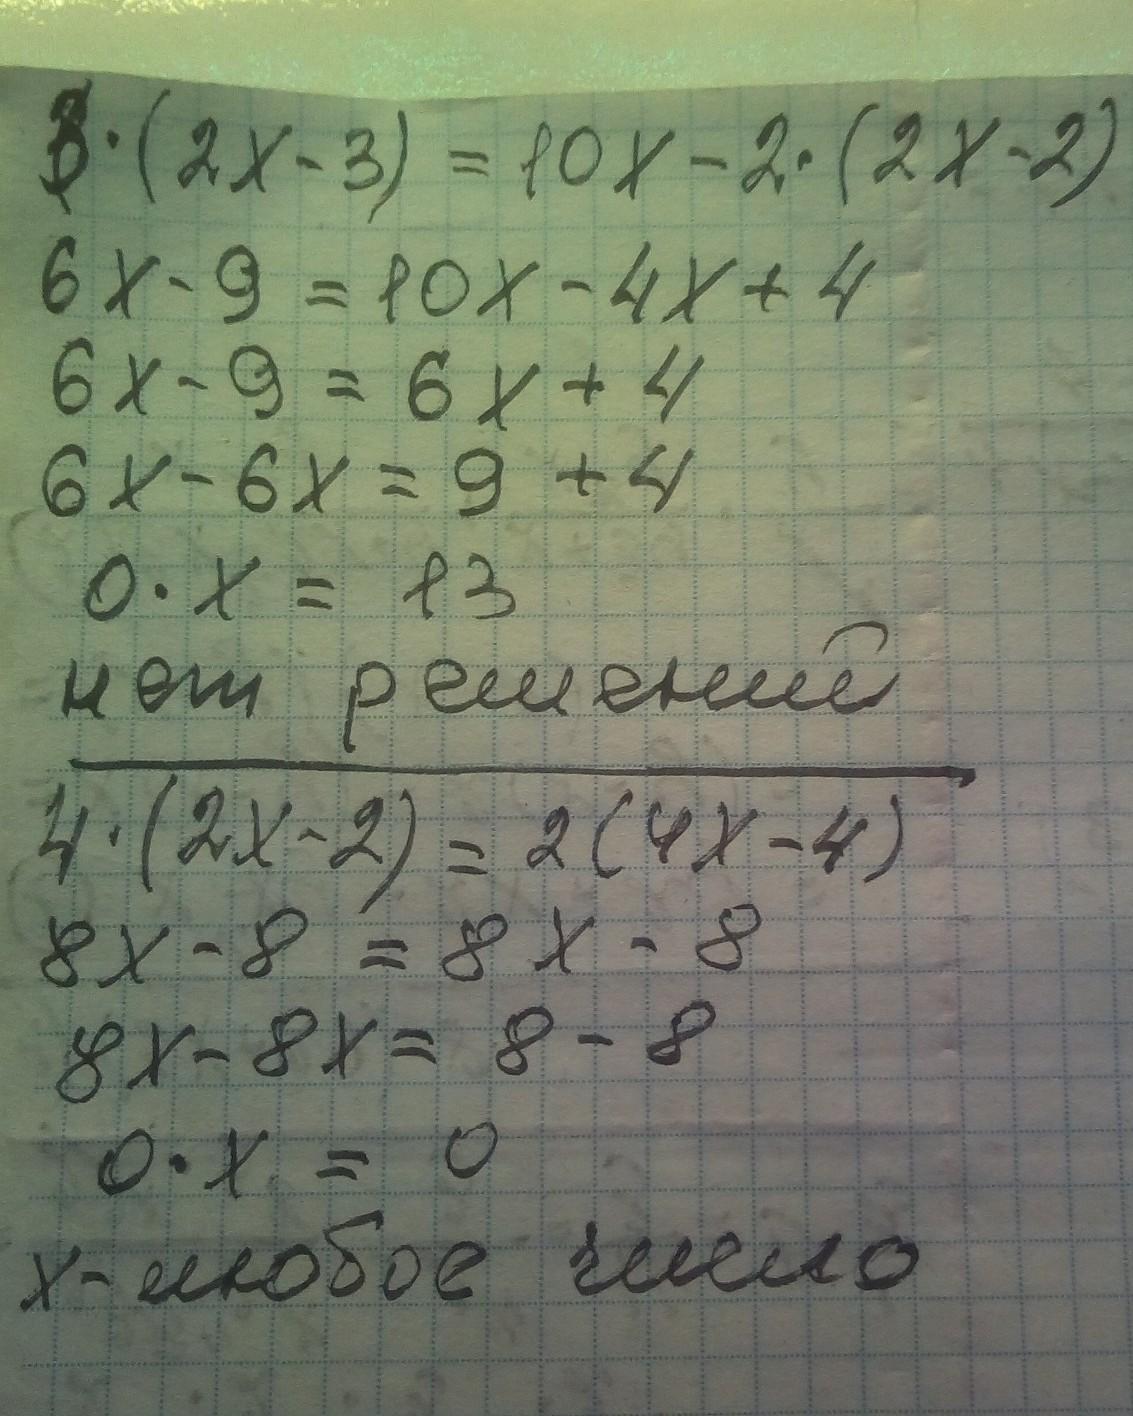 3·(2x-3)=10x-2·(2x-2)
6x-9=10x-4x+4
6x-9=6x+4
6x-6x=9+4
0·x=13
нет решений
4·(2x-2)=2(4x-4)
8x-8=8x-8
8x-8x=8-8
0·x=0
x-любое число